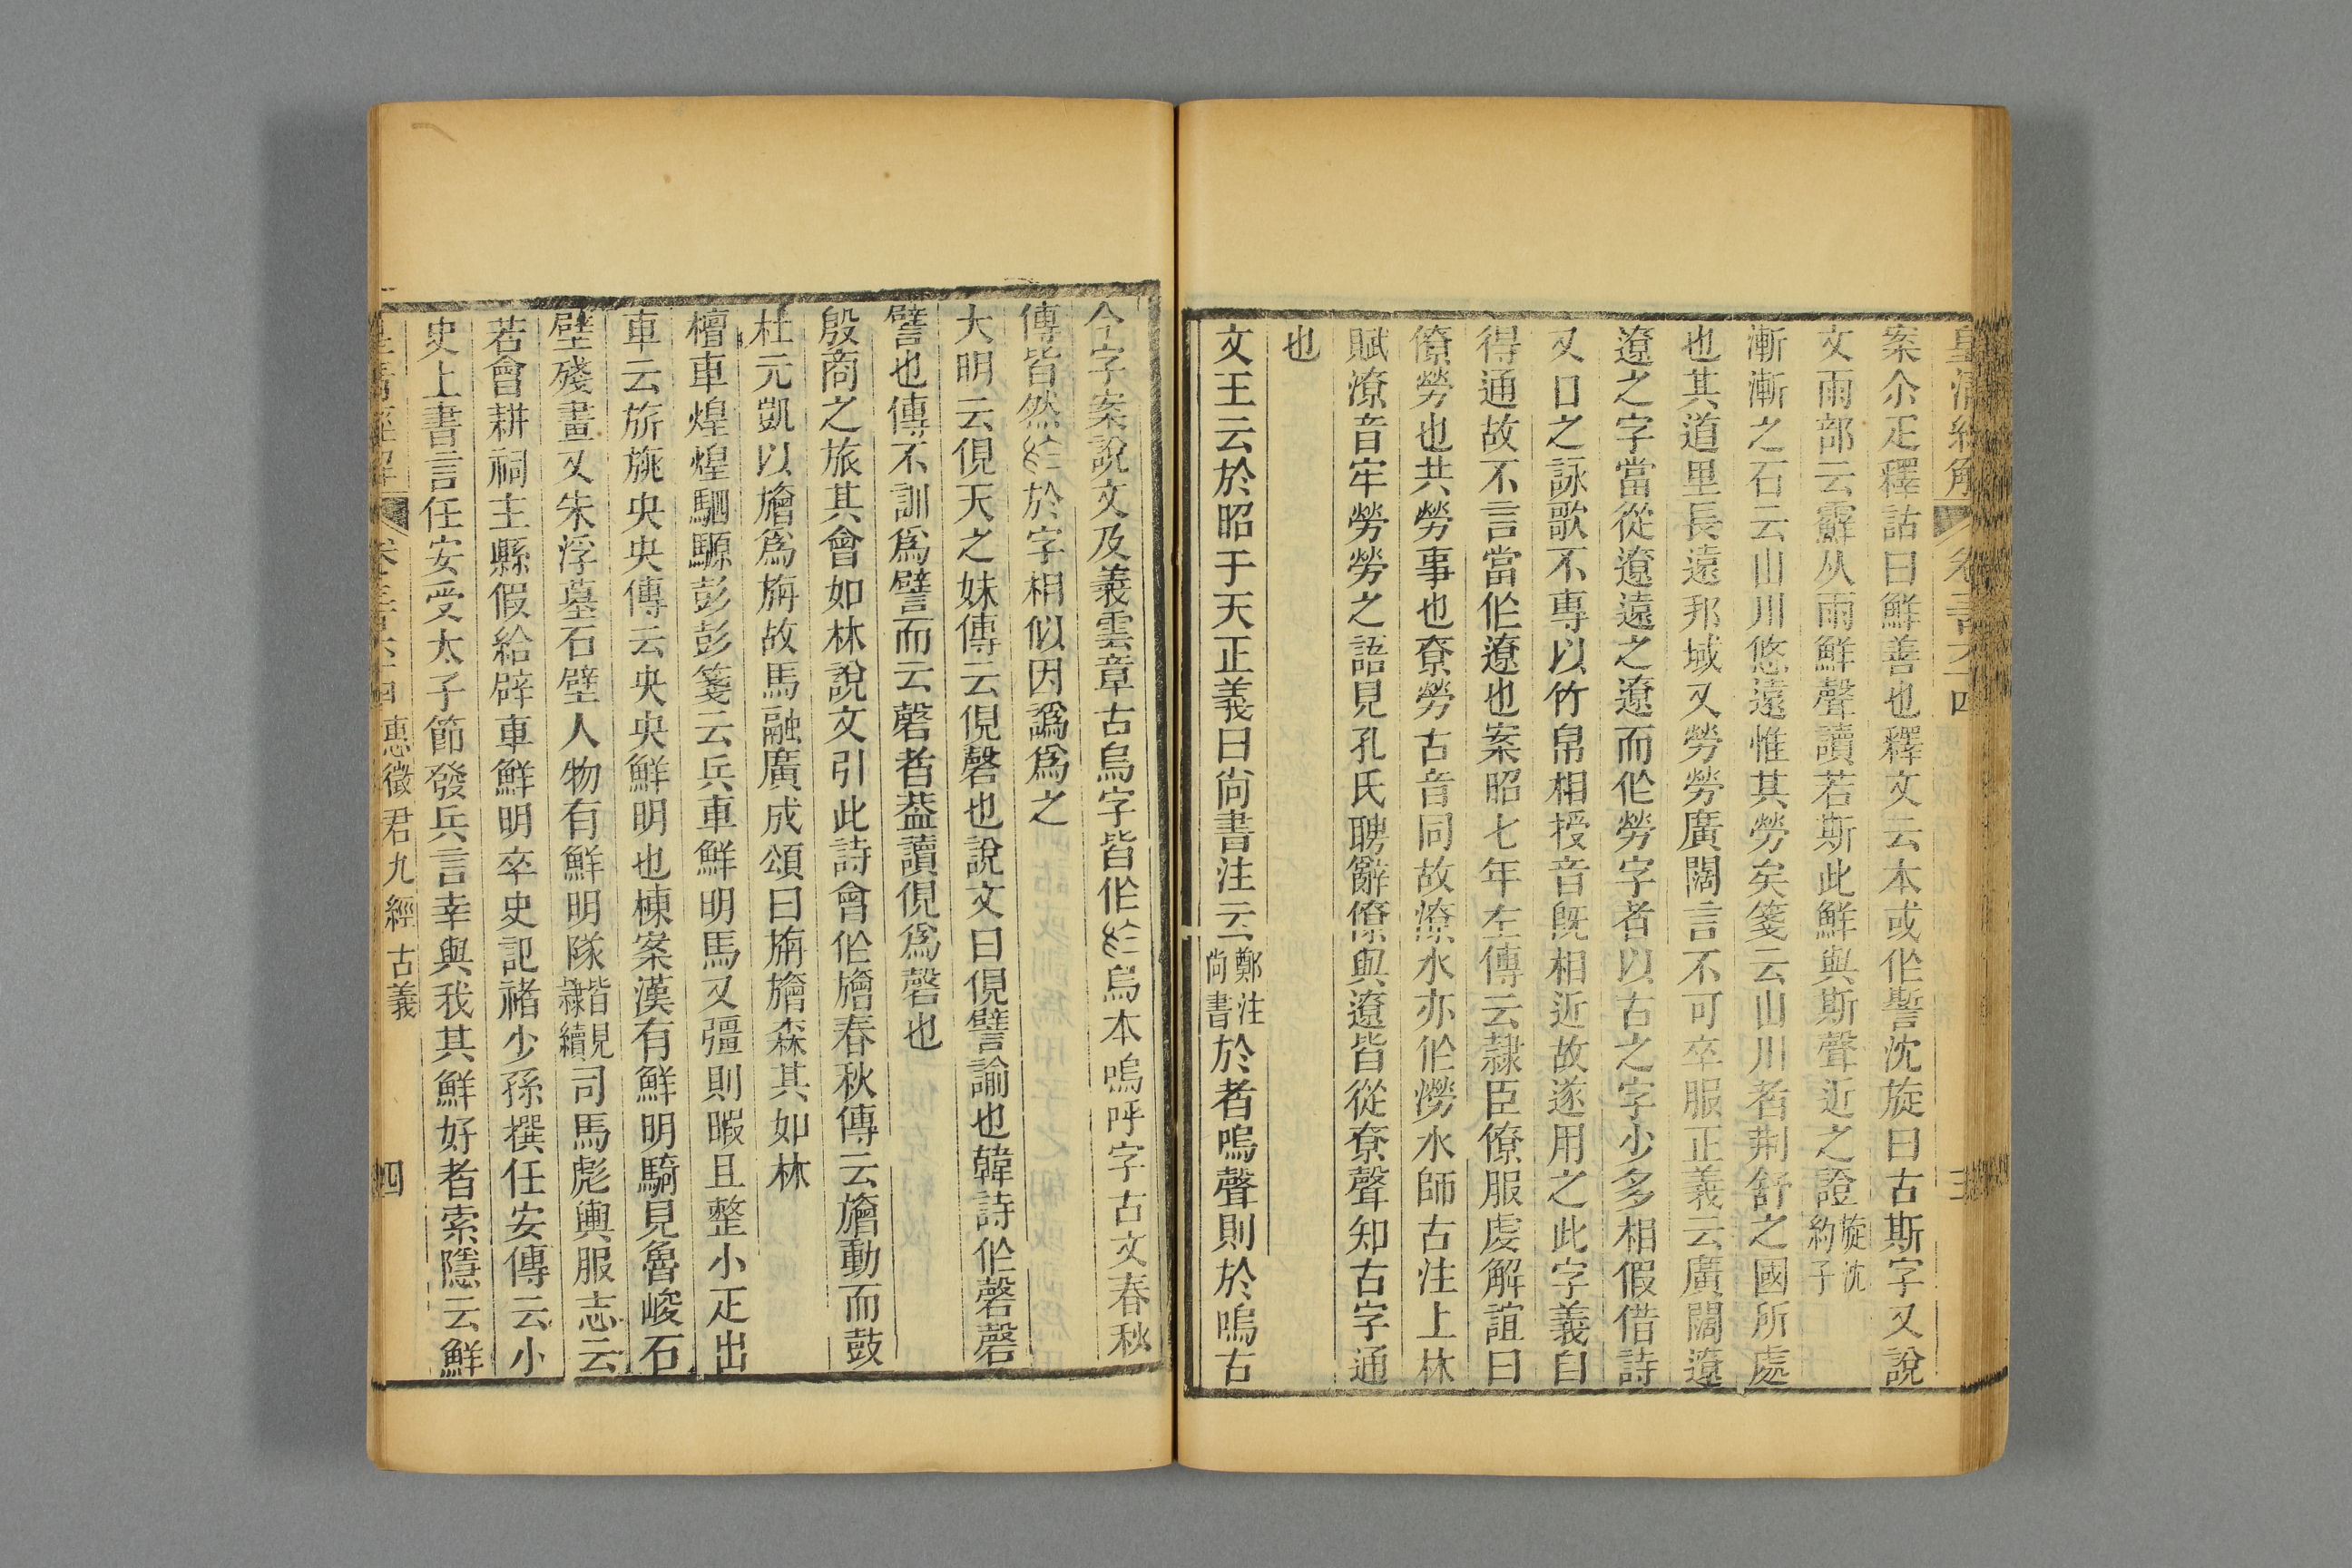 皇淸經解 卷三百六十四 三
案尒疋釋詁曰鮮善也釋文云本或作誓沈旋曰古斯字又說
文雨部云霹从雨鮮聲讀若斯此鮮與斯聲近之證旋沈約子
漸漸之石云山川悠遠惟其勞矣箋云山川者荆舒之國所處
也其道里長遠邦域又勞勞廣闊言不可卒服正義云廣闊遼
遼之字當從遼遠之遼而作勞字者以古之字少多相假借詩
又口之詠歌不專以竹帛相授音既相近故遂用之此字義自
得通故不言當作遼也案昭七年左傳云隸臣僚服虔解誼曰
僚勞也共勞事也尞勞古音同故潦水亦作澇水師古注上林
賦潦音牢勞勞之語見孔氏聘辭僚與遼皆從尞聲知古字通
也
文王云於昭于天正義曰尙書注云鄭注尙書於者嗚聲則於嗚古
今字案說文及義雲章古烏字皆作𥾝烏本嗚呼字古文春秋
傳皆然𥾝於字相似因譌爲之
大明云俔天之妹傳云俔磬也說文曰俔譬諭也韓詩作磬磬
譬也傳不訓爲譬而云磬者葢讀俔爲磬也
殷商之旅其會如林說文引此詩會作旝春秋傳云旝動而鼓
杜元凱以旝爲旃故馬融廣成頌曰旃旝森其如林
檀車煌煌駟騵彭彭箋云兵車鮮明馬又彊則暇且整小疋出
車云旂旐央央傳云央央鮮明也棟案漢有鮮明騎見魯峻石
壁殘畫又朱浮墓石壁人物有鮮明隊皆見隸續司馬彪輿服志云
若會耕祠主縣假給辟車鮮明卒史記褚少孫撰任安傳云小
史上書言任安受太子節發兵言幸與我其鮮好者索隱云鮮
皇淸經解 卷三百六十四 惠徵君九經古義 四